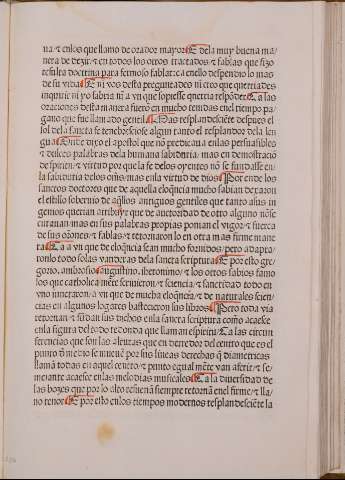 ua ⁊ enlos que llamo de orador mayor. E dela muy buena ma
nera de dezir. ⁊ en todos los otros tractados ⁊ fablas que fizo
resulta doctrina para fermoso fablar: ca en ello despendio lo mas
de su vida. E ni vos desta preguntades ni creo que querriades
inquirir ni yo sabria ni a vn que sopiesse querria respõder. Ca las
oraciones desta manera fuerõ en mucho tenidas enel tiempo pa
gano que fue llamado gentil. Mas resplandesciẽte despues el
sol dela sancta fe tenebrosciose algun tanto el resplandor dela len
gua. Onde dixo el apostol que nõ predicaua enlas persuasibles
⁊ dulces palabras dela humana sabiduria. mas en demostraciõ
de spiritu ⁊ virtud por que la fe delos oyentes nõ se fundasse en
la sabiduria delos oms. mas enla virtud de dios. Por ende los
sanctos doctores que de aquella eloquẽcia mucho sabian dexaron
el estillo soberuio de aq̃llos antiguos gentiles que tanto a sus in
gemos querian atribuyr que de auctoridad de otro alguno nõ se
curauan mas en sus palabras propias ponian el vigor ⁊ fuerça
de sus oraçones ⁊ fablas ⁊ retornaron lo en otra mas firme mane
ra. Ca a vn que de eloq̃ncia sean mucho fornidos: pero adapta
ronlo todo solas vanderas dela sancta scriptura. E por esto gre
gorio. ambrosio. augustino. iheronimo ⁊ los otros sabios famo
sos que catholica mẽte scriuieron ⁊ sciencia ⁊ sanctidad todo en
vno iuntaron. a vn que de mucha eloquẽcia ⁊ de naturales scien
cias en algunos logares bastecieron sus libros. Pero toda via
retornan ⁊ fundan sus dichos enla sancta scriptura como acaesce
enla figura del todo redonda que llaman espirica. Ca las circun
ferencias que son las alturas que en derredor del centro que es el
punto dl medio se mueuẽ por sus lineas derechas q̃ diametricas
llamã todas en aquel centro ⁊ punto egual mẽte van aferir. ⁊ se
meiante acaesce enlas melodias musicales. Ca la diuersidad de
las bozes que por lo alto resuenã siempre retornã enel firme ⁊ lla
no tenor. E por esto enlos tiempos modernos resplandesciẽte la